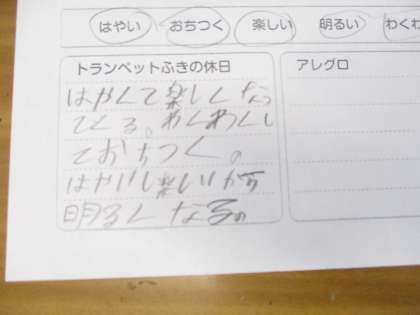 はやい おちつく 楽しい 明るい わくわ
トランペットふきの休日
はやくて楽しくなっ
てくる。わくわくし
ておちつく。
はやいし楽しいから
明るくなる。
アレグロ